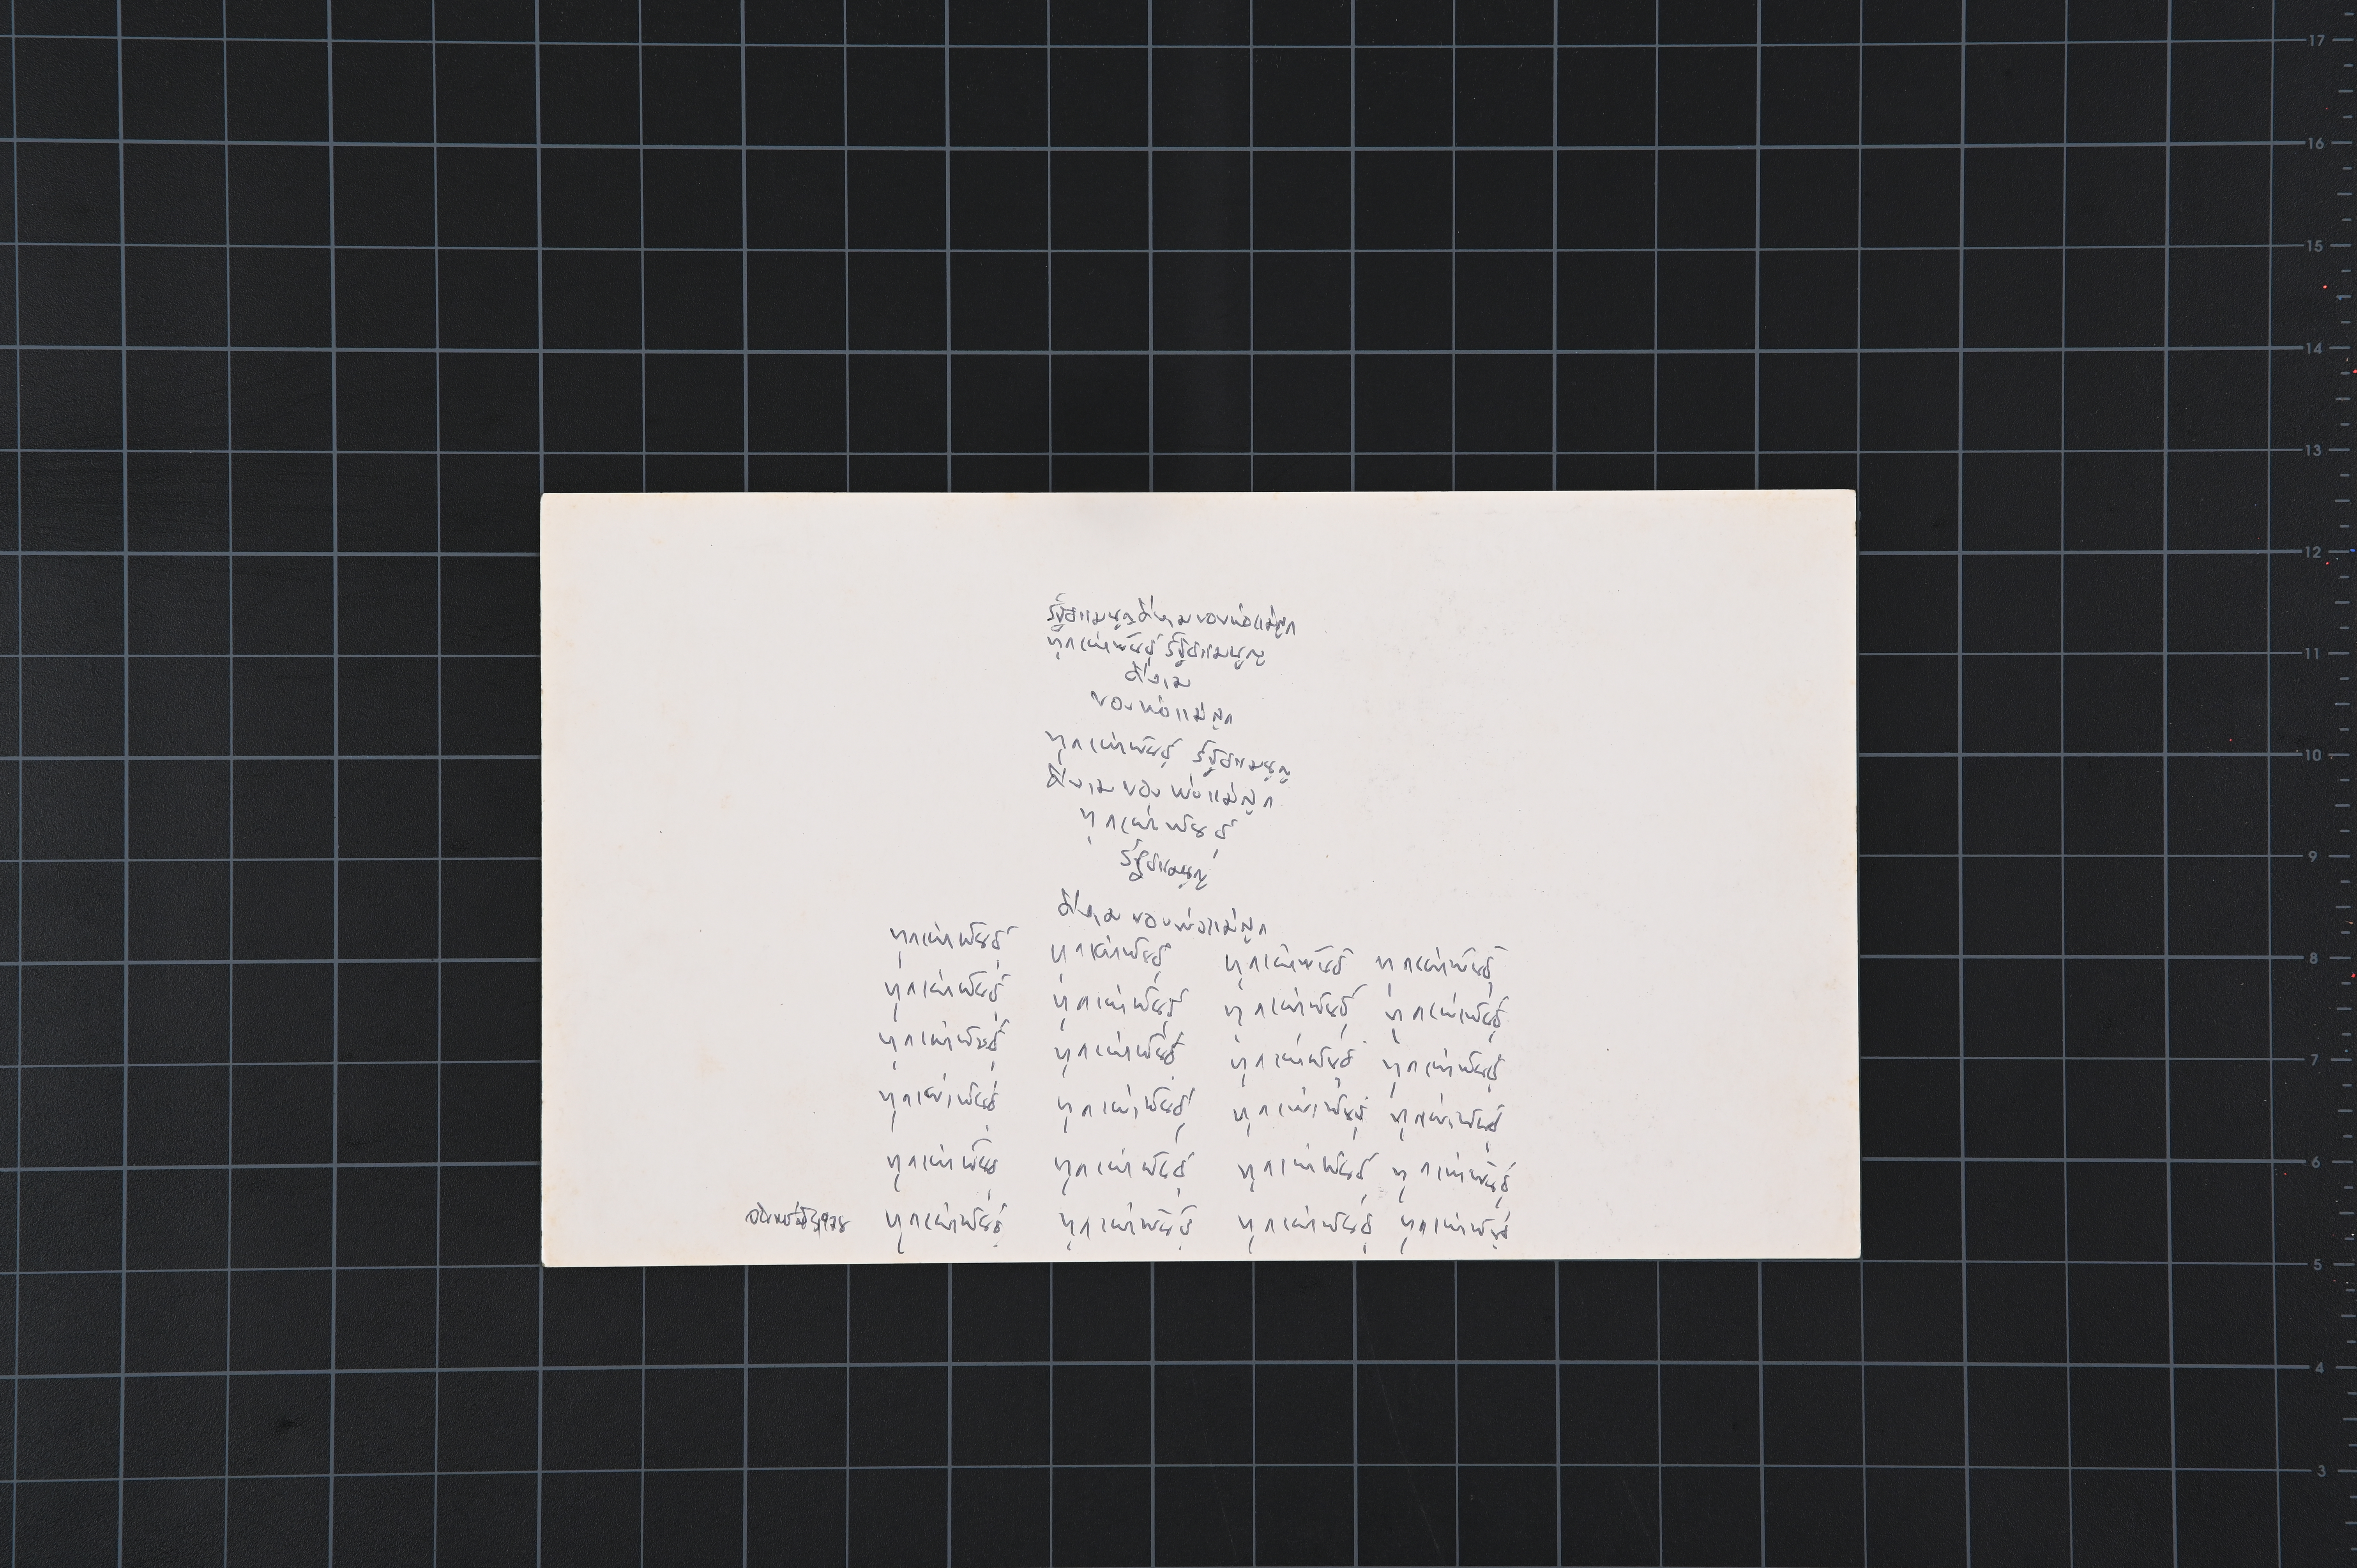 รัฐธรรมนูญดีงามของพ่อแม่ลูก
ทุกเผ่าพันธุ์ รัฐธรรมนูญ
ดีงาม
ของพ่อแม่ลูก
ทุกเผ่าพันธุ์ รัฐธรรมนูญ
ดีงาม ของ พ่อแม่ลูก
ทุกเผ่าพันธุ์
รัฐธรรมนูญ
ดีงาม ของพ่อแม่ลูก
ทุกเผ่าพันธุ์ ทุกเผ่าพันธุ์ ทุกเผ่าพันธุ์ ทุกเผ่าพันธุ์
ทุกเผ่าพันธุ์ ทุกเผ่าพันธุ์ ทุกเผ่าพันธุ์ ทุกเผ่าพันธุ์
ทุกเผ่าพันธุ์ ทุกเผ่าพันธุ์ ทุกเผ่าพันธุ์ ทุกเผ่าพันธุ์
ทุกเผ่าพันธุ์ ทุกเผ่าพันธุ์ ทุกเผ่าพันธุ์ ทุกเผ่าพันธุ์
ทุกเผ่าพันธุ์ ทุกเผ่าพันธุ์ ทุกเผ่าพันธุ์ ทุกเผ่าพันธุ์
ทุกเผ่าพันธุ์ ทุกเผ่าพันธุ์ ทุกเผ่าพันธุ์ ทุกเผ่าพันธุ์
17
16
15
14
13
12
11
10
9
8
7
6
5
4
3